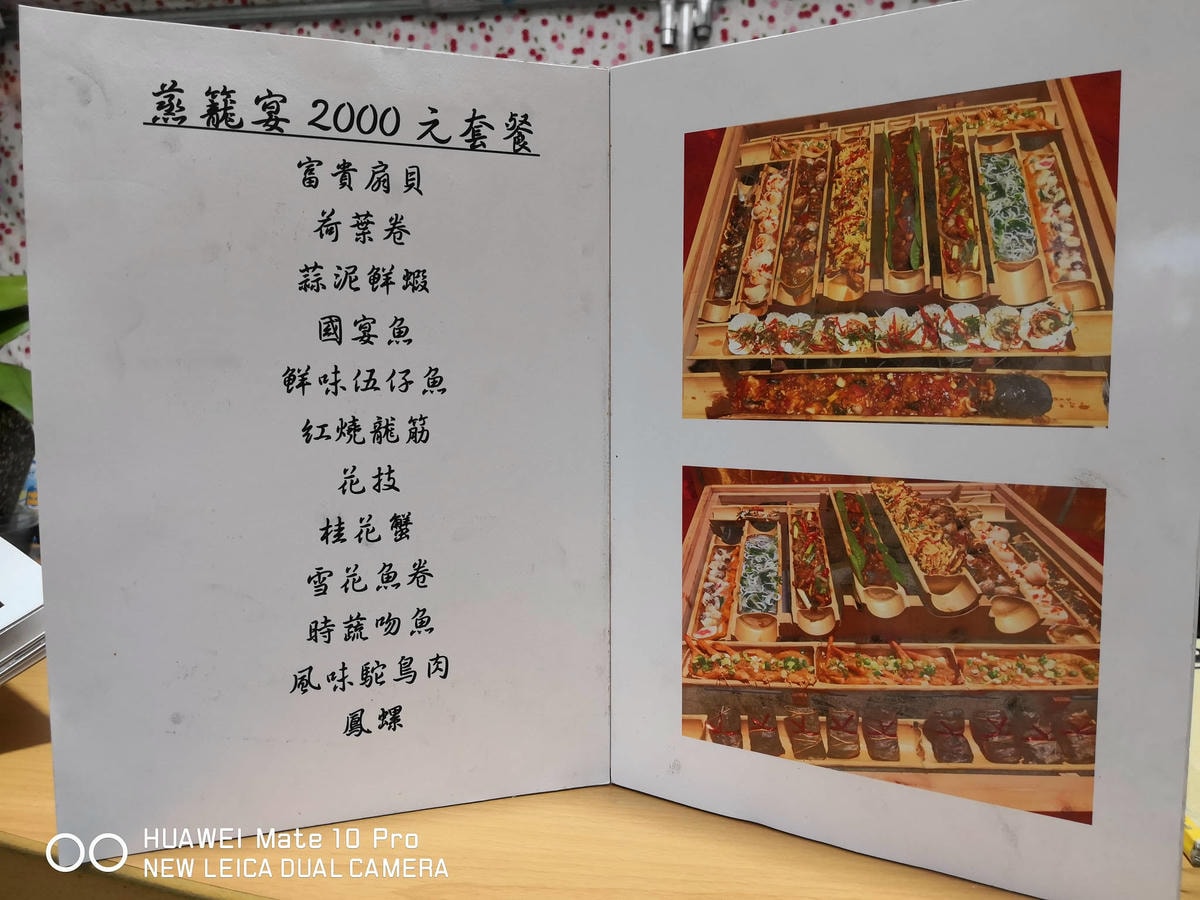 蒸籠宴 2000 元套餐
富貴扇貝
荷葉卷
蒜泥鮮蝦
國宴魚
鮮味伍仔魚
紅燒龍筋
花技
桂花蟹
雪花魚卷
時蔬吻魚
風味駝鳥肉
鳳螺
HUAWEI Mate 10 Pro
NEW LEICA DUAL CAMERA